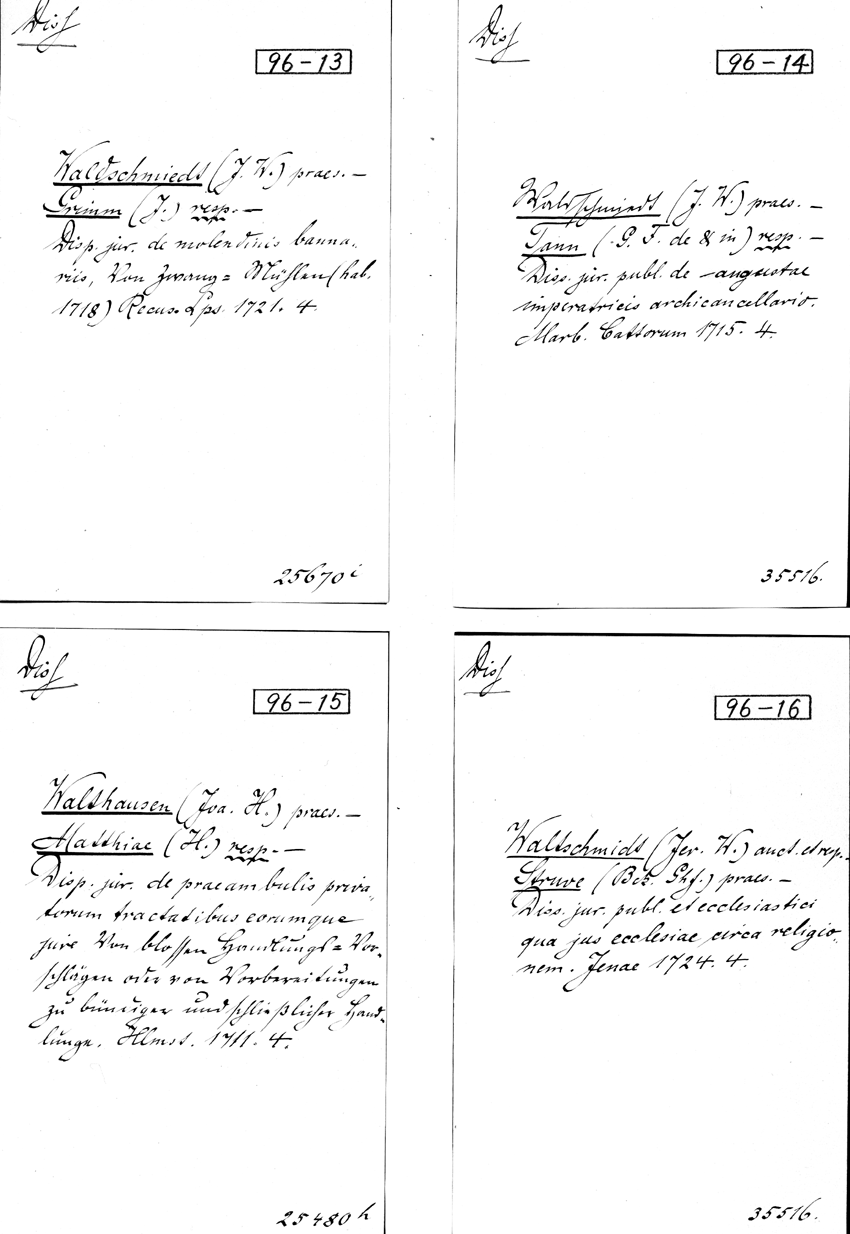 Diss
96-13
Waldschmiedt (J. W.) praes. —
Grimm (J.) resp. —
Disp. jur. de molendinis banna-
riis, Von Zwang= Mühlen (hab.
1718) Recus. Lps. 1721. 4.
25670 i
Diss
96-14
Waldschmiedt (J. W.) praes. —
Tann (G. F. de & in) resp. —
Diss. jur. publ. de augustae
imperatricis archicancellario.
Marb. Cattorum 1715. 4.
35516.
Diss
96-15
Walthausen (Joa. H.) praes. —
Matthiae (H.) resp. —
Disp. jur. de praeambulis priva-
torum tractatibus eorumque
jure Von blossen Handlungs= Vor-
schlägen oder von Vorbereitungen
zu bündiger und schließlicher Hand-
lunge. Hlmst. 1711. 4.
25480 h
Diss
96-16
Waltschmidt (Jer. W.) auct. et resp. —
Struve (Bch. Ghf.) praes. —
Diss. jur. publ. et ecclesiastici
qua jus ecclesiae circa religio-
nem. Jenae 1724. 4.
35516.